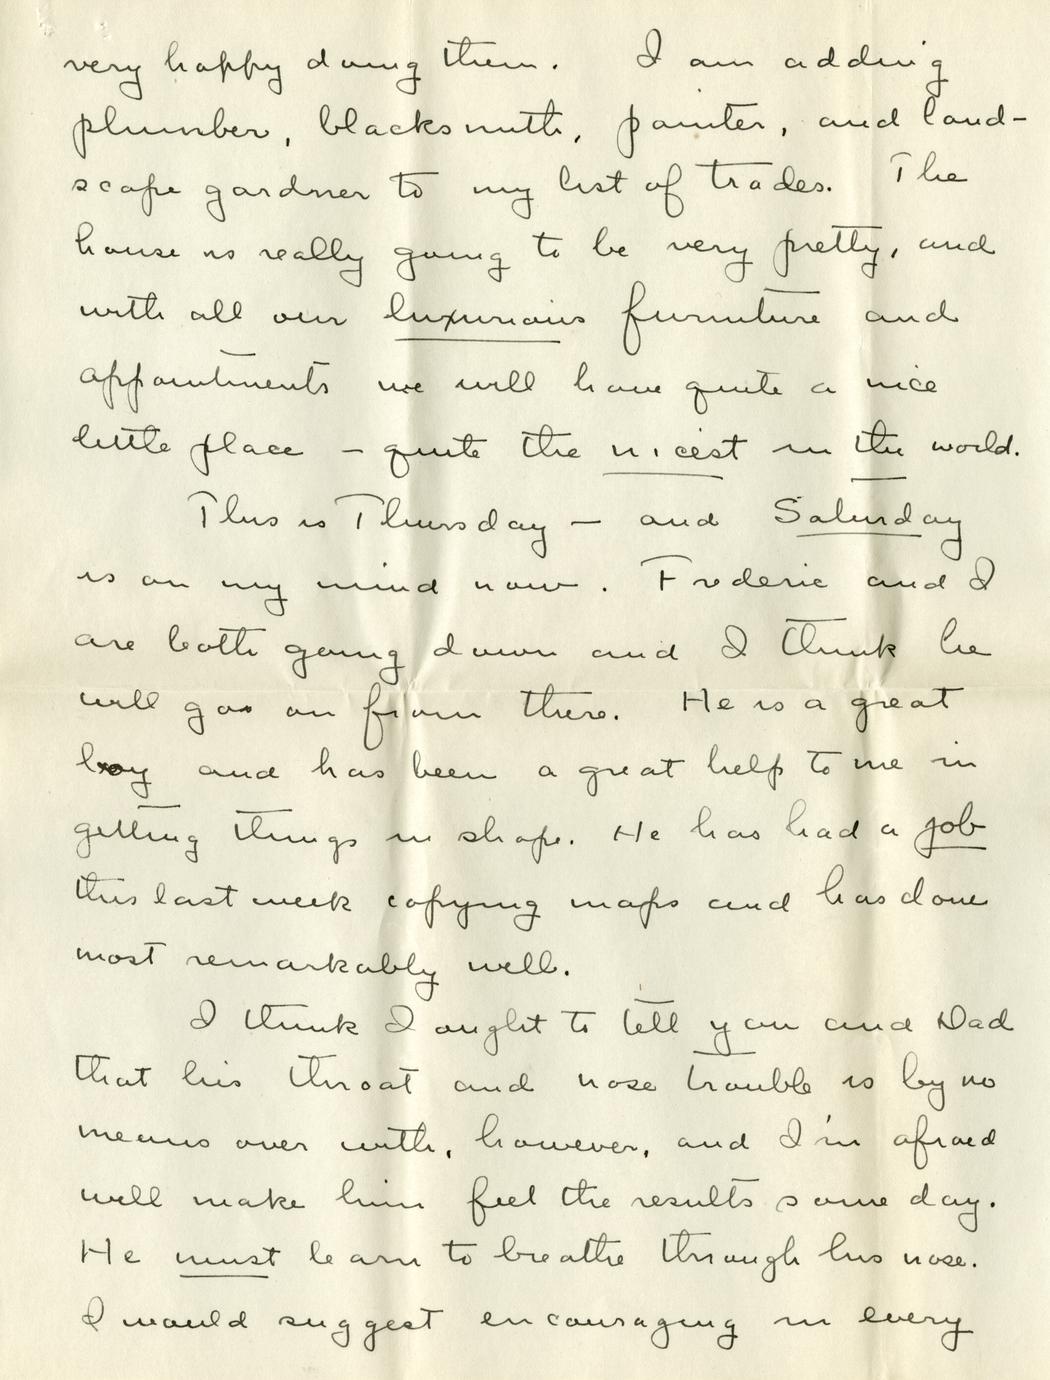 very happy doing them. I am adding
plumber, blacksmith, painter, and land-
scape gardner to my list of trades. The
house is really going to be very pretty, and
with all our luxurious furniture and
appointments we will have quite a nice
little place - quite the nicest in the world.
This is Thursday - and Saturday
is on my mind now. Frederic and I
are both going down and I think he
will go on from there. He is a great
boy and has been a great help to me in
getting things in shape. He has had a job
this last week copying maps and has done
most remarkably well.
I think I ought to tell you and Dad
that his throat and nose trouble is by no
means over with, however, and I'm afraid
will make him feel the results some day.
He must learn to breathe through his nose.
I would suggest encouraging in every